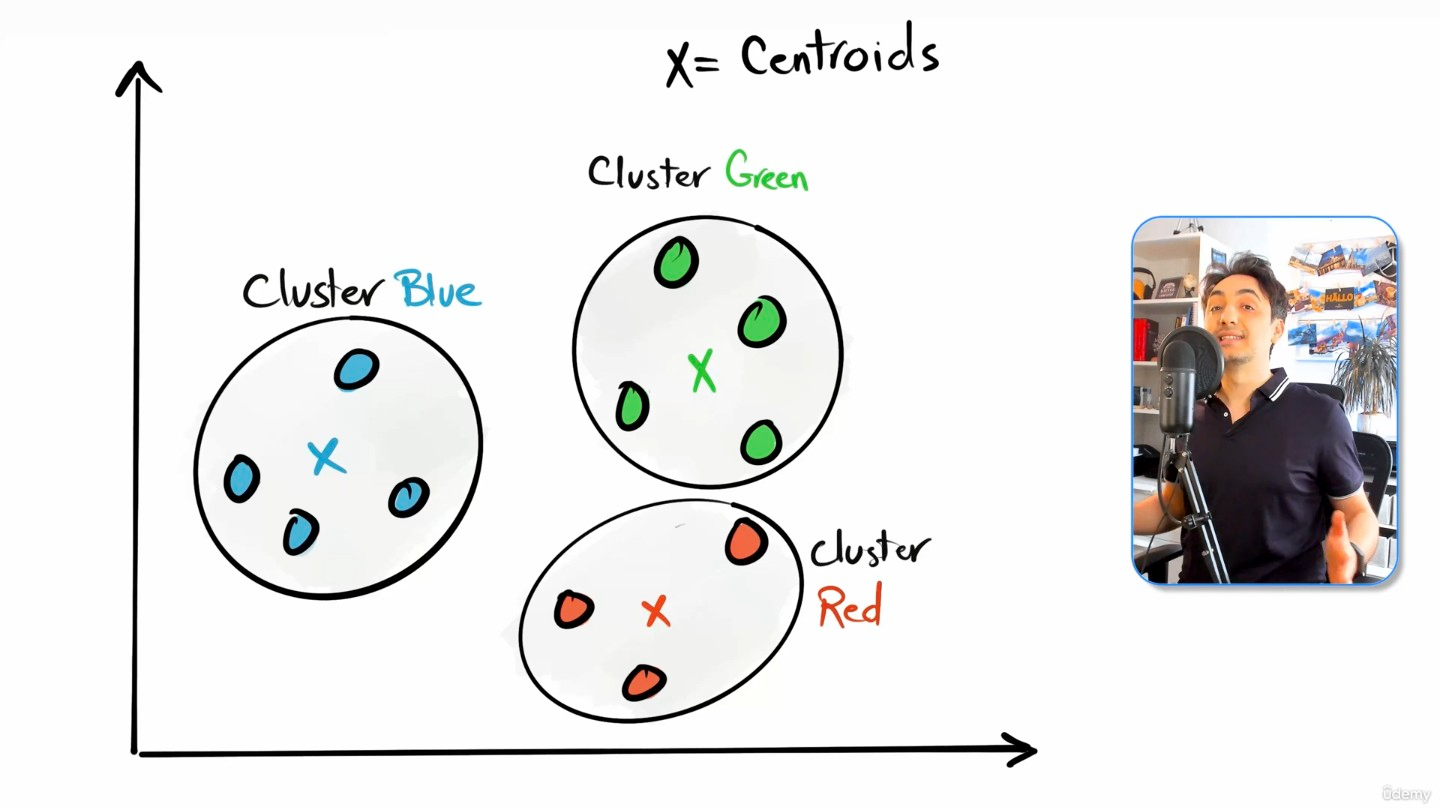 X= Centroids
Cluster Green
Cluster Blue
Cluster
Red
HALLO
ûdemy